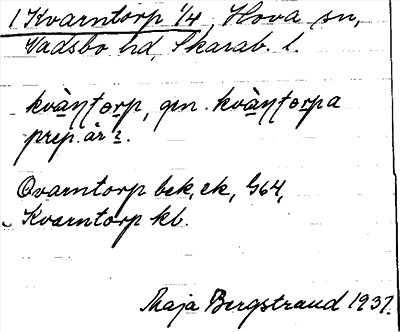 1 Kvarntorp 1/4, Hova sn,
Vadsbo hd, Skarab. l.
kvàṇṭorp, gen. kvàṇṭorpa
prep. är i.
Qvarntorp bek, ek, G64,
Kvarntorp kb.
Maja Bergstrand 1937.